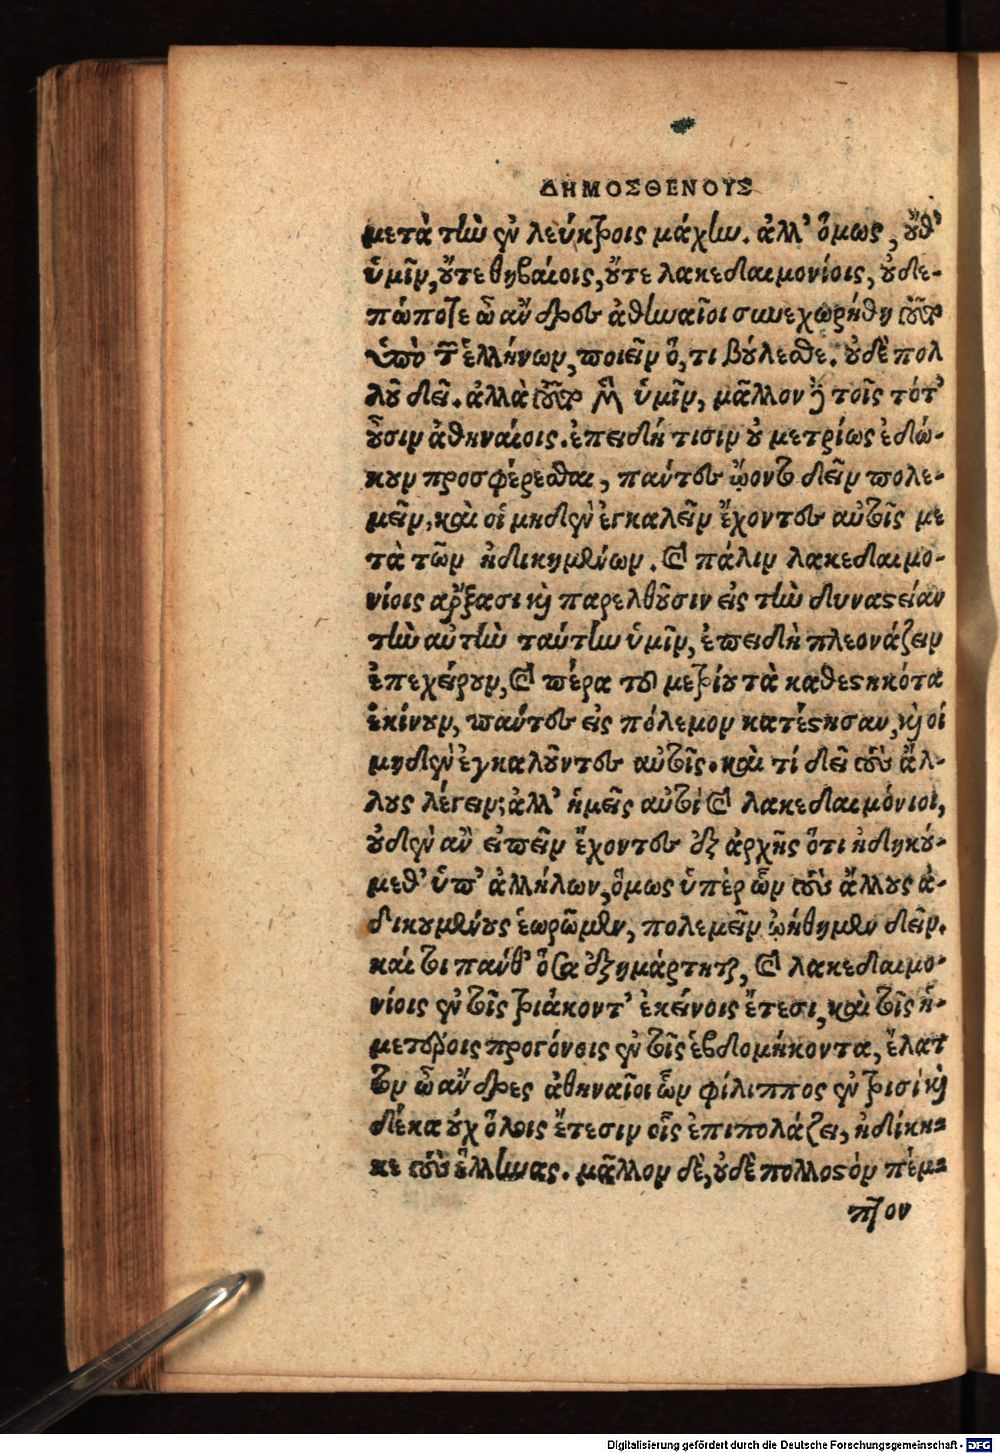 ΔΗΜΟΣΘΕΝΟΥΣ
μετὰ τὴν ἐν λεύκτροις μάχην. ἀλλ' ὅμως, οὔθ'
ὑμῖν, οὔτε θηβαίοις, οὔτε λακεδαιμονίοις, οὐδε-
πώποτε ὦ ἄνδρες ἀθηναῖοι συνεχωρήθη τοῦθ'
ὑπὸ τῶν ἑλλήνων, ποιεῖν ὅ, τι βούλεσθε. οὐδὲ πολ
λοῦ δεῖ. ἀλλὰ τοῦτο μὲν ὑμῖν, μᾶλλον δὲ τοῖς τότ'
οὖσιν ἀθηναίοις. ἐπειδή τισιν οὐ μετρίως ἐδό-
κουν προσφέρεσθαι, πάντες ᾤοντο δεῖν πολε-
μεῖν, καὶ οἱ μηδὲν ἐγκαλεῖν ἔχοντες αὐτοῖς με
τὰ τῶν ἠδικημένων. καὶ πάλιν λακεδαιμο-
νίοις ἄρξασι καὶ παρελθοῦσιν εἰς τὴν δυναστείαν
τὴν αὐτὴν ταύτην ὑμῖν, ἐπειδὴ πλεονάζειν
ἐπεχείρουν, καὶ πέρα τοῦ μετρίου τὰ καθεστηκότα
ἐκίνουν, πάντες εἰς πόλεμον κατέστησαν, καὶ οἱ
μηδὲν ἐγκαλοῦντες αὐτοῖς. καὶ τί δεῖ τοὺς ἄλ-
λους λέγειν; ἀλλ' ἡμεῖς αὐτοὶ καὶ λακεδαιμόνιοι,
οὐδὲν ἂν εἰπεῖν ἔχοντες ἐξ ἀρχῆς ὅτι ἠδικού-
μεθ' ὑπ' ἀλλήλων, ὅμως ὑπὲρ ὧν τοὺς ἄλλους ἀ-
δικουμένους ἑωρῶμεν, πολεμεῖν ᾠήθημεν δεῖν.
καί τοι πάνθ' ὅσα ἐξημάρτηται, καὶ λακεδαιμο-
νίοις ἐν τοῖς τριάκοντ' ἐκείνοις ἔτεσι, καὶ τοῖς ἡ-
μετέροις προγόνοις ἐν τοῖς ἑβδομήκοντα, ἔλατ
τον ὦ ἄνδρες ἀθηναῖοι ὧν φίλιππος ἐν τρισὶ καὶ
δέκα οὐχ ὅλοις ἔτεσιν οἷς ἐπιπολάζει, ἠδίκη-
κε τοὺς ἕλληνας. μᾶλλον δὲ, οὐδὲ πολλοστὸν πέμ-
πτον
Digitalisierung gefördert durch die Deutsche Forschungsgemeinschaft - DFG